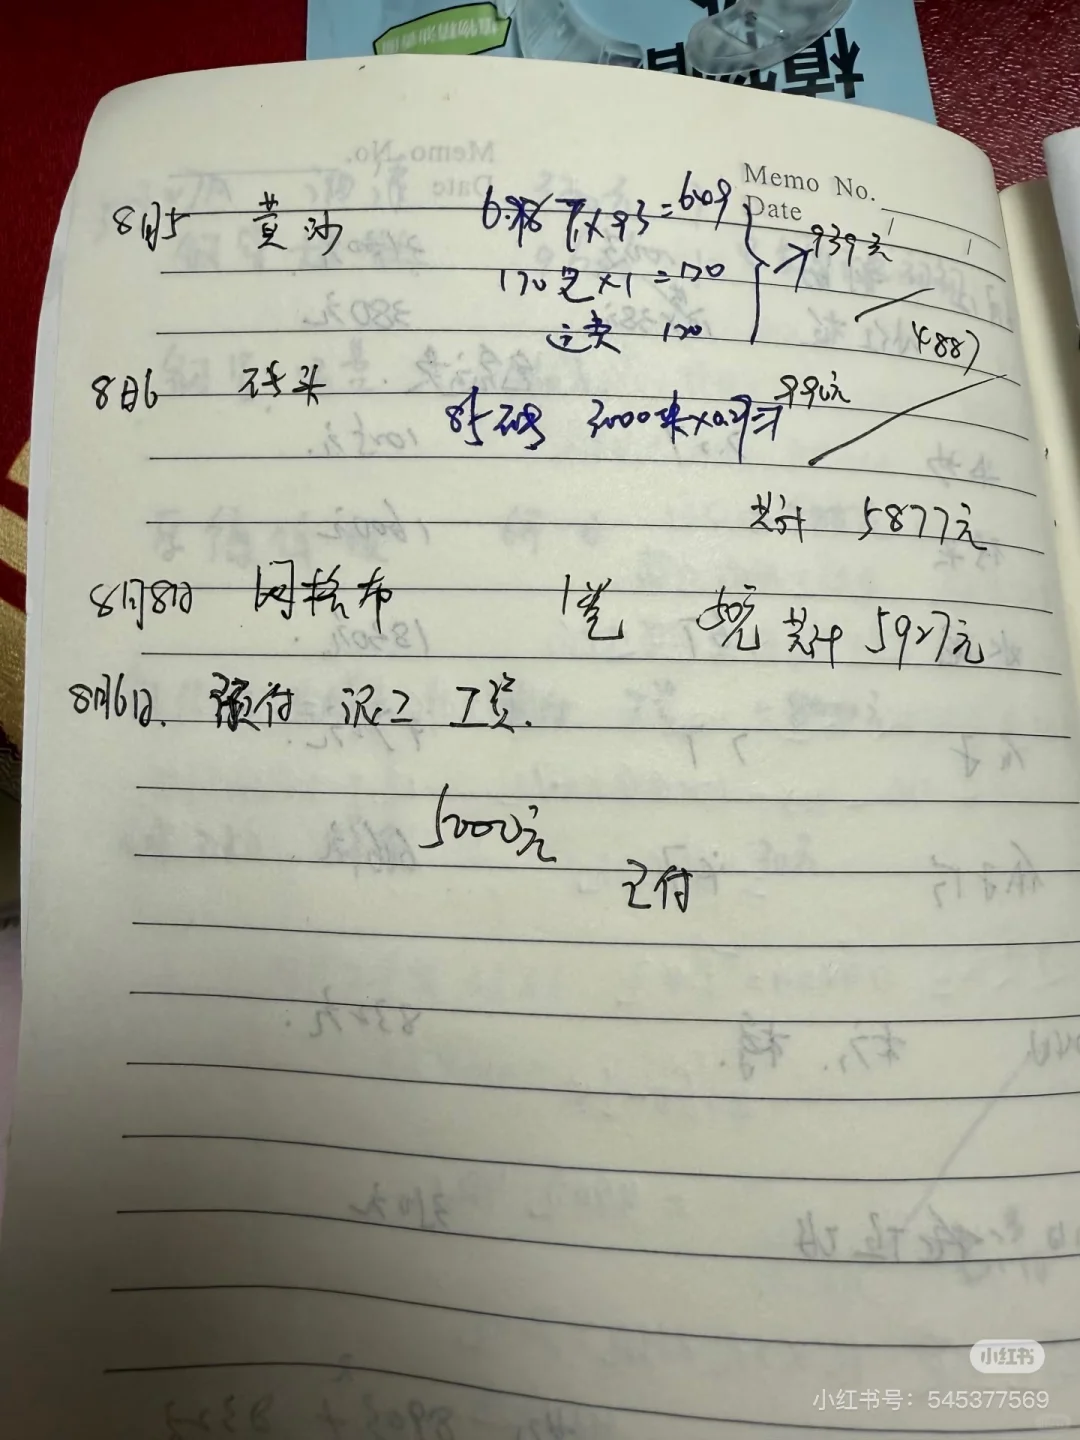 Memo No.
Date
8月5 黄沙 6.56T×93=609
939元
170元×1=170
运费 120
4887
8月6 砖头
990元
85砖
共计 5877元
8月8日 网格布 1卷 50元 共计 5927元
8月6日. 预付 泥工 工资.
5000元
已付
小红书
小红书号：545377569